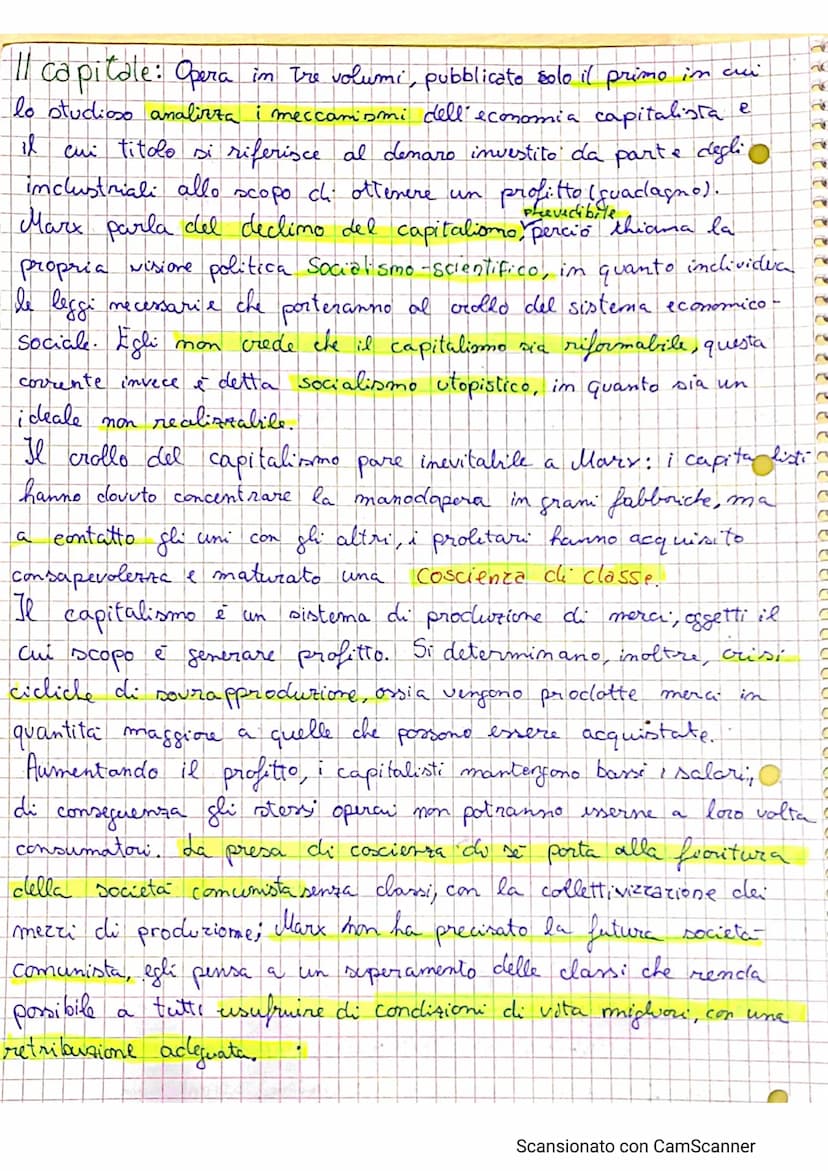 Il capitale: Opera in tre volumi, pubblicato solo il primo in cui
lo studioso analizza i meccanismi dell'economia capitalista e
il cui titolo si riferisce al denaro investito da parte degli
industriali allo scopo di ottenere un profitto (guadagno).
prevedibile
Marx parla del declino del capitalismo, perciò chiama la
propria visione politica Socialismo-scientifico, in quanto individua
le leggi necessarie che porteranno al crollo del sistema economico-
sociale. Egli non crede che il capitalismo sia riformabile, questa
corrente invece è detta socialismo utopistico, in quanto sia un
ideale non realizzabile.
Il crollo del capitalismo pare inevitabile a Marx: i capitalisti
hanno dovuto concentrare la manodopera in grani fabbriche, ma
a contatto gli uni con gli altri, i proletari hanno acquisito
consapevolezza e maturato una coscienza di classe.
Il capitalismo è un sistema di produzione di merci, oggetti il
cui scopo è generare profitto. Si determinano, inoltre, crisi
cicliche di sovrapproduzione, ossia vengono prodotte merci in
quantità maggiore a quelle che possono essere acquistate.
Aumentando il profitto, i capitalisti mantengono bassi i salari,
di conseguenza gli stessi operai non potranno essere a loro volta
consumatori. La presa di coscienza di sé porta alla fioritura
della società comunista senza classi, con la collettivizzazione dei
mezzi di produzione; Marx non ha precisato la futura società
comunista, egli pensa a un superamento delle classi che renda
possibile a tutti usufruire di condizioni di vita migliori, con una
retribuzione adeguata.
Scansionato con CamScanner